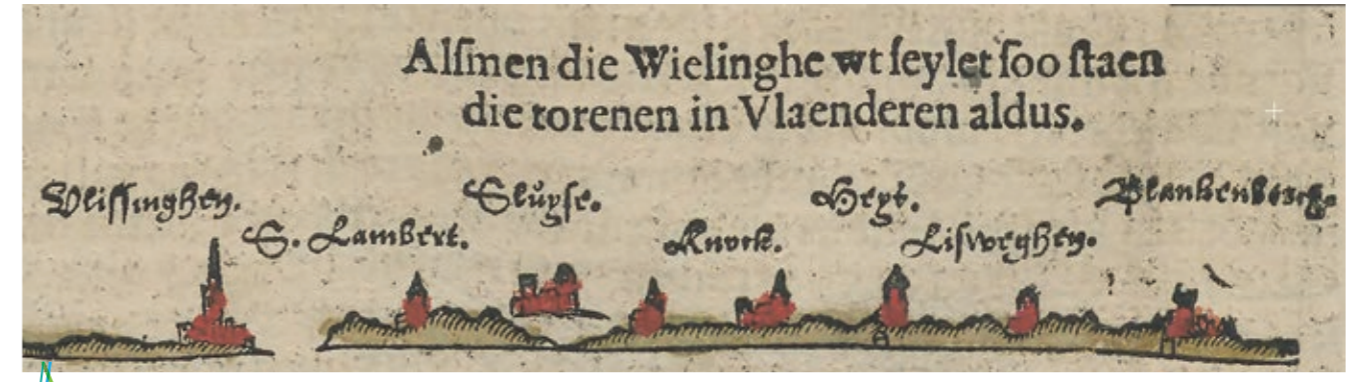 Alſmen die Wielinghe wt ſeylet ſoo ſtaen
die torenen in Vlaenderen aldus.
Vliſſinghen.
S. Lambert.
Sluyſe.
Knock.
Heyſt.
Liſweghen.
Blankenberch.
N